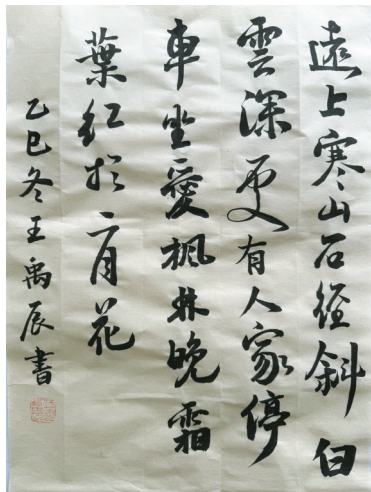 遠上寒山石徑斜白
雲深更有人家停
車坐愛楓林晚霜
葉紅於二月花
乙巳冬王禹辰書